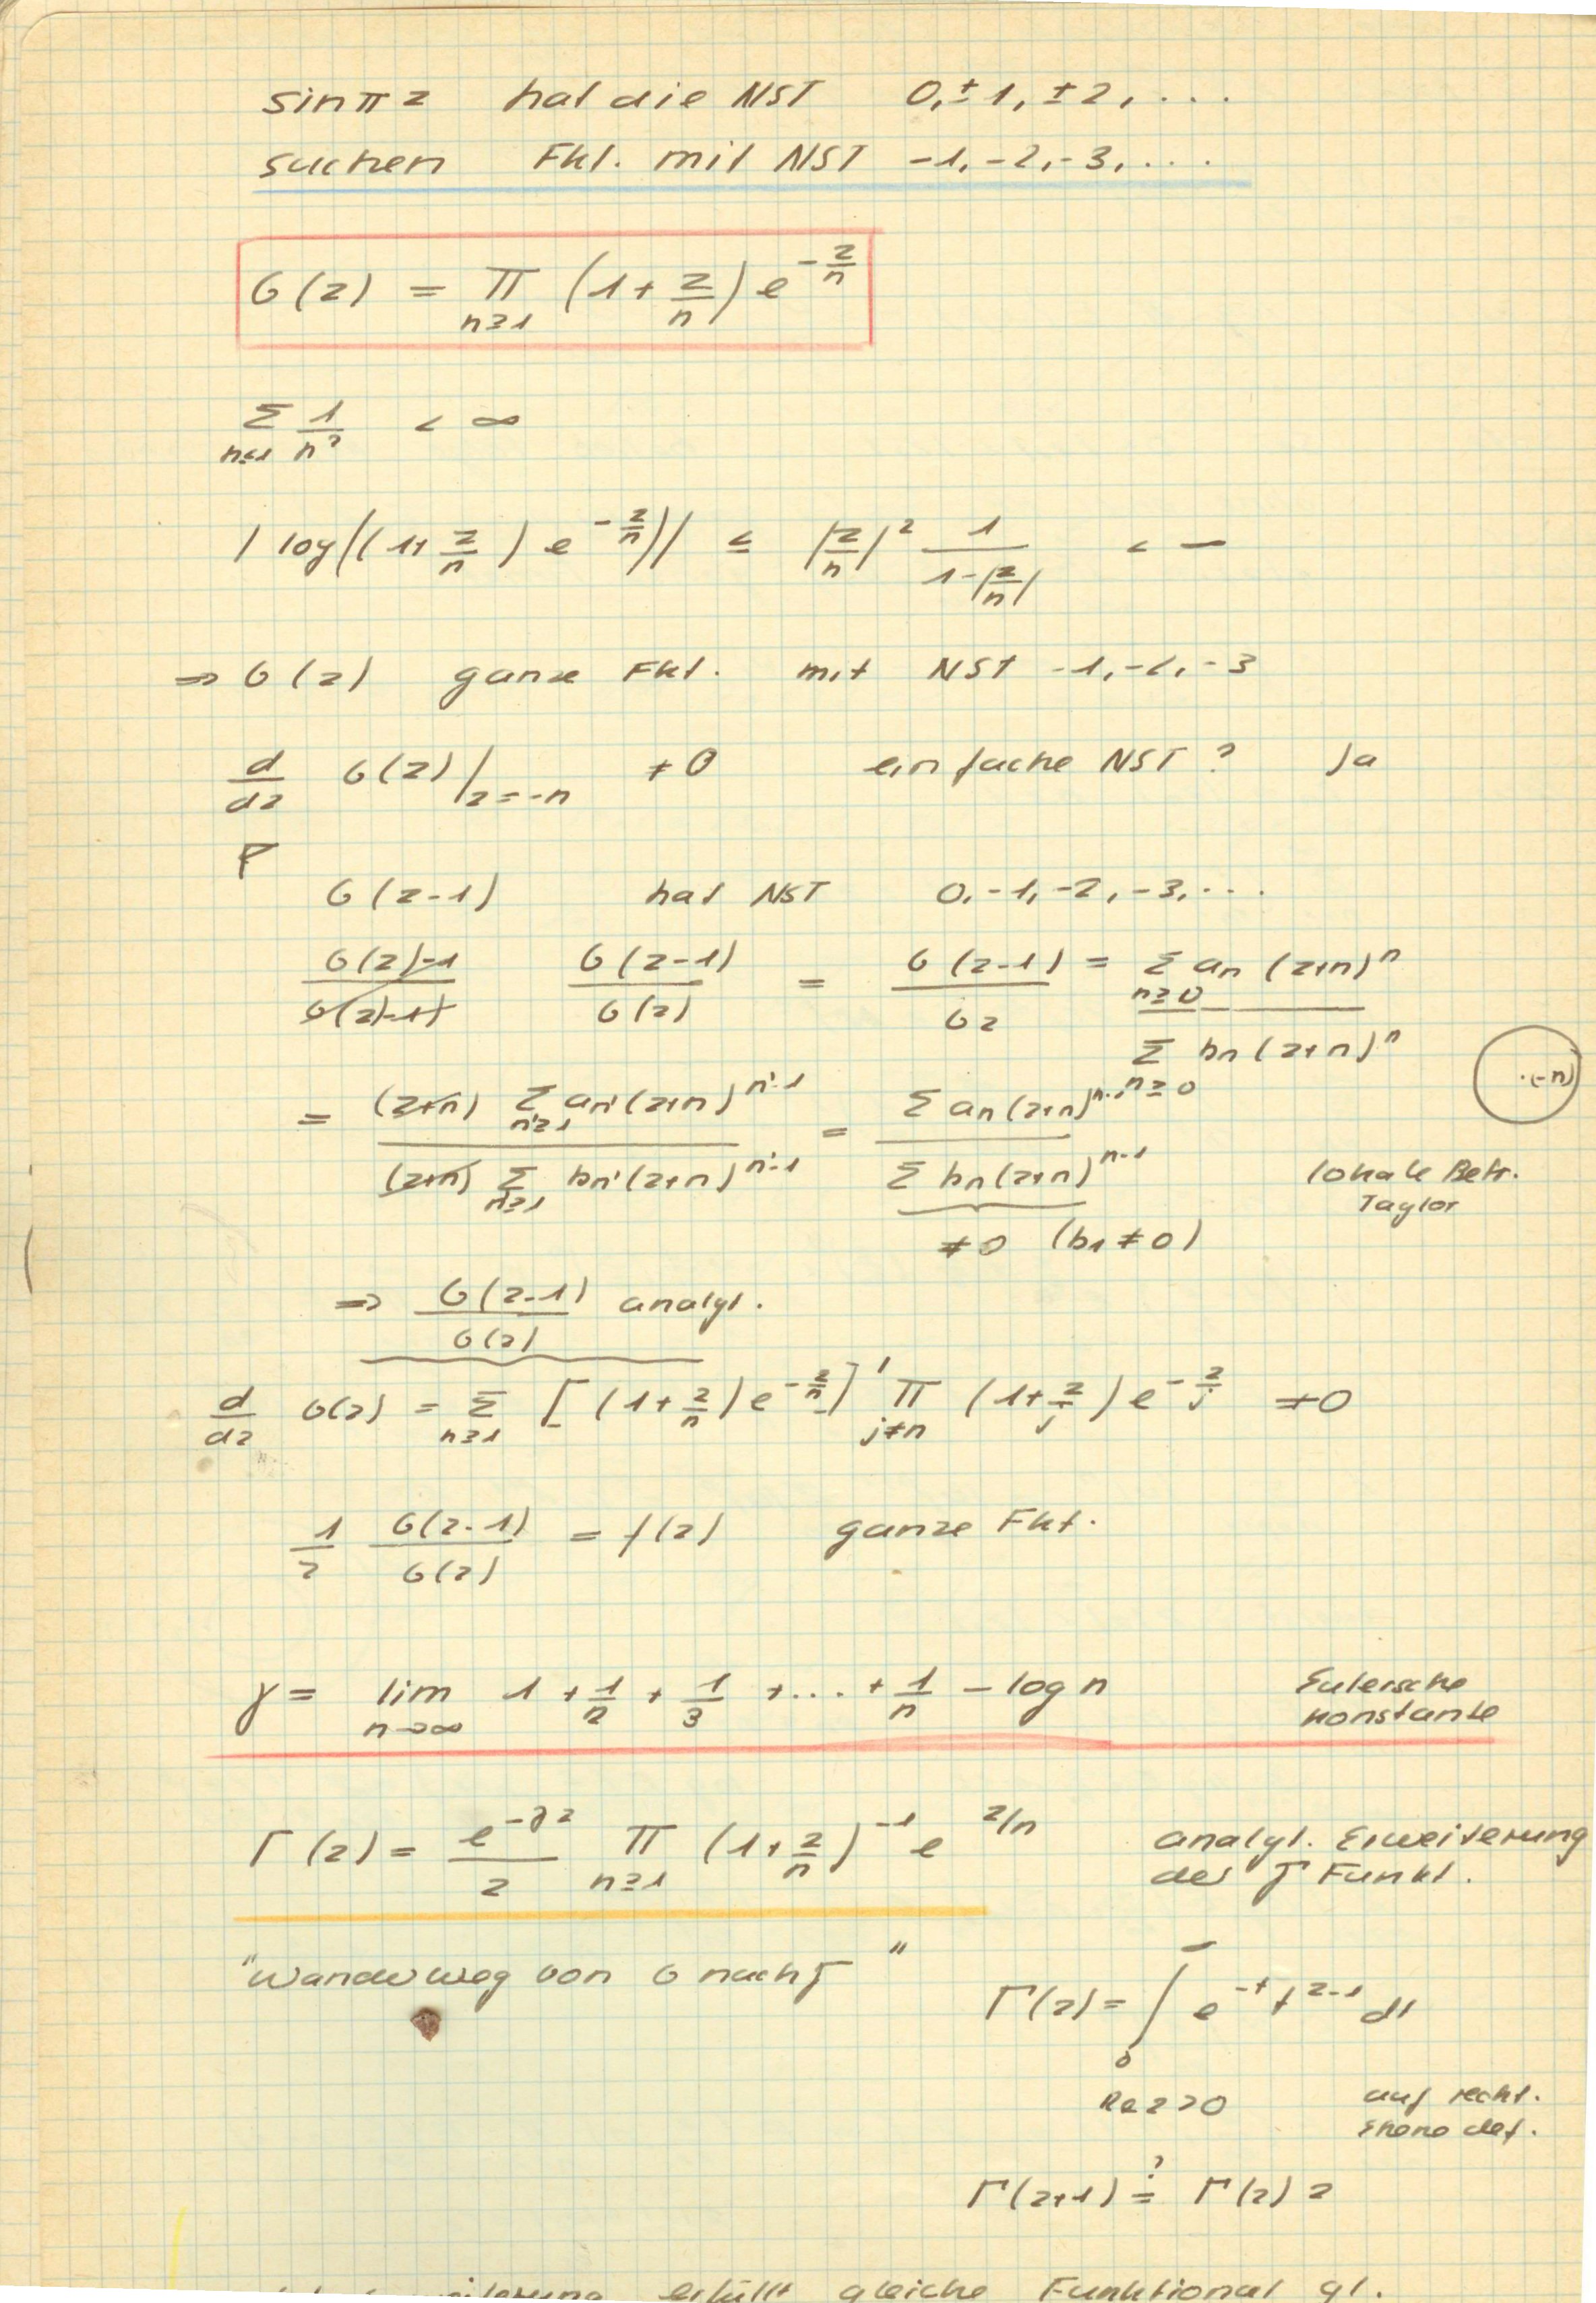 sin π z hat die NST 0, ±1, ±2, ...
suchen Fkt. mit NST -1, -2, -3, ...
G(z) = Π_{n≥1} (1 + z/n) e^{-z/n}
Σ_{n≤1} 1/n² < ∞
| log((1+ z/n) e^{-z/n}) | ≤ |z/n|² 1/(1-|z/n|) < ∞
⇒ G(z) ganze Fkt. mit NST -1, -2, -3
d/dz G(z) |_{z=-n} ≠ 0 einfache NST? Ja
G(z-1) hat NST 0, -1, -2, -3, ...
G(z)-1 / G(z)-1) G(z-1)/G(z) = G(z-1)/Gz = Σ_{n≥0} an (z+n)^n / Σ_{n≥0} bn (z+n)^n
.(-n)
= (z+n) Σ_{n'≥1} an'(z+n)^{n'-1} / (z+n) Σ_{n'≥1} bn'(z+n)^{n'-1} = Σ an(z+n)^{n-1} / Σ bn(z+n)^{n-1}
lokale Betr.
Taylor
≠0 (b1 ≠ 0)
⇒ G(z-1)/G(z) analyt.
d/dz G(z) = Σ_{n≥1} [(1+ z/n) e^{-z/n}]' Π_{j≠n} (1+ z/j) e^{-z/j} ≠ 0
1/z G(z-1)/G(z) = f(z) ganze Fkt.
γ = lim_{n→∞} 1 + 1/2 + 1/3 + ... + 1/n - log n
Eulersche
Konstante
Γ(z) = e^{-γz}/z Π_{n≥1} (1+ z/n)^{-1} e^{z/n}
analyt. Erweiterung
der Γ Funkt.
"Wanderweg von G nach Γ"
Γ(z) = ∫_0^∞ e^{-t} t^{z-1} dt
Re z > 0 auf recht.
Ebene def.
Γ(z+1) ≟ Γ(z) z
erfüllt gleiche Funktional gl.